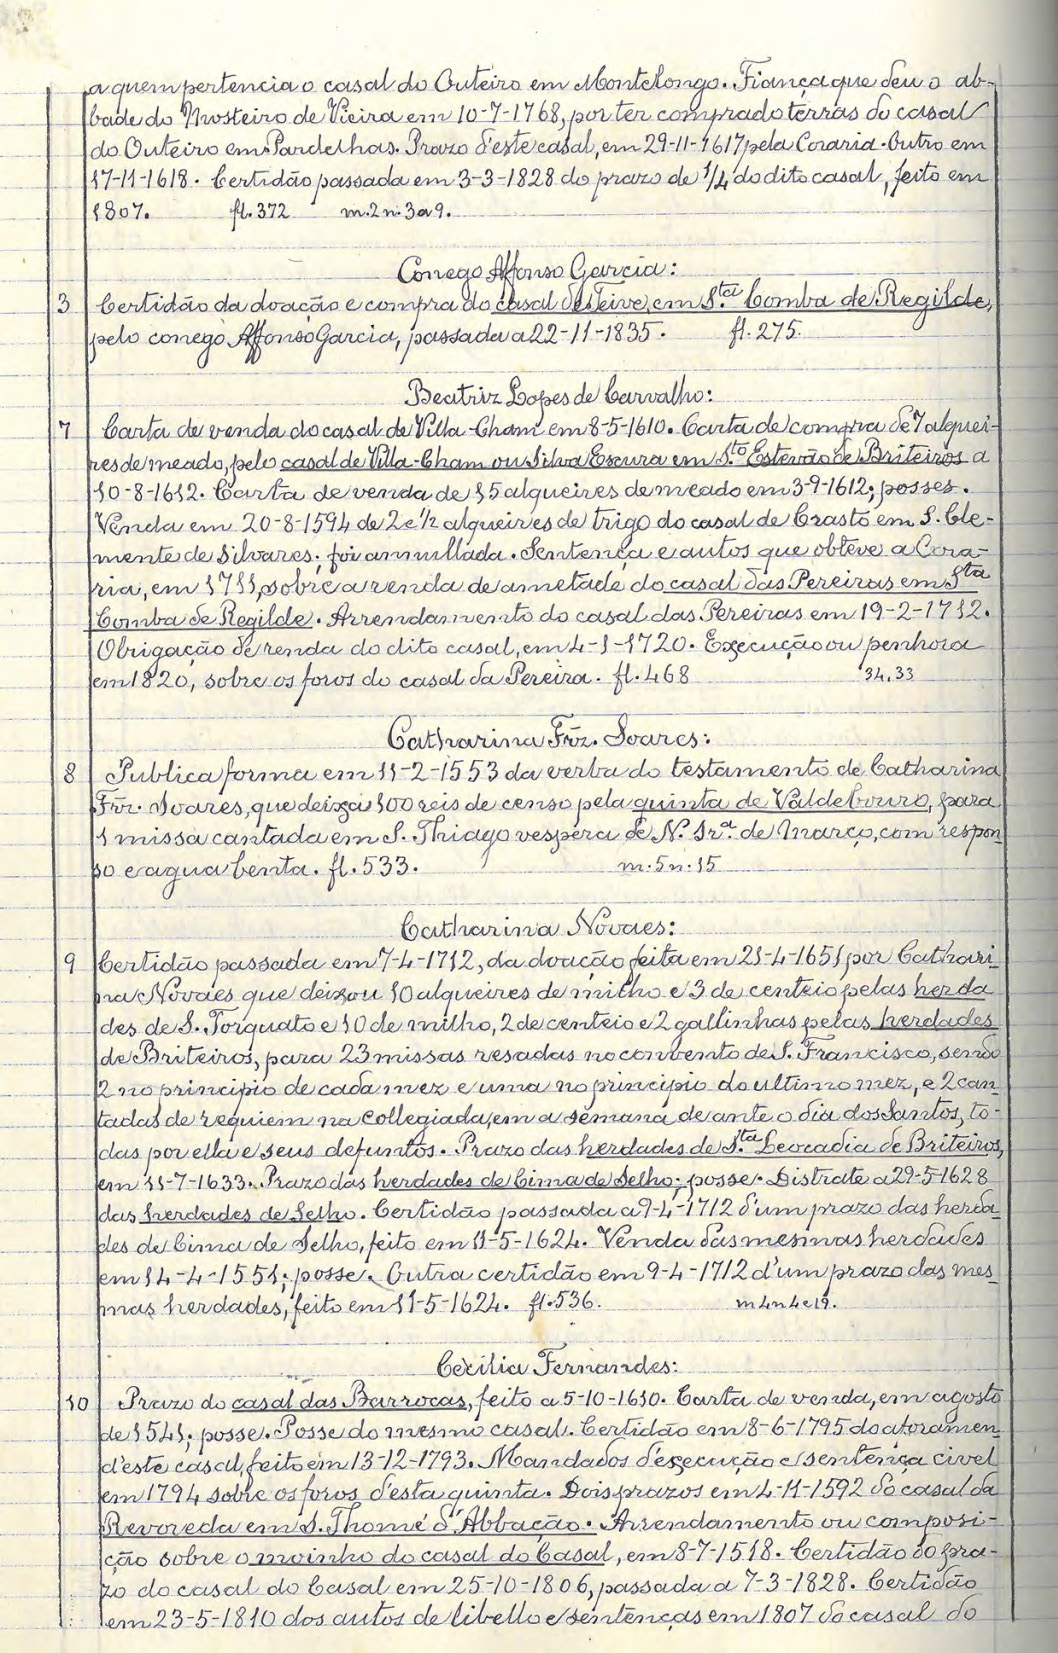 a quem pertencia o casal do Outeiro em Montelongo. Fiança que deu o ab-
bade do Mosteiro de Vieira em 10-7-1768, por ter comprado terras do casal
do Outeiro em Pardelhas. Prazo d'este casal, em 29-11-1617 pela Coraria. Outro em
17-11-1618. Certidão passada em 3-3-1828 do prazo de 1/4 do dito casal, feito em
1807. fl. 372 m. 2 n. 3 a 9.
Conego Affonso Garcia:
3 Certidão da doação e compra do casal de Teive, em S.ta Comba de Regilde,
pelo conego Affonso Garcia, passada a 22-11-1835. fl. 275.
Beatriz Lopes de Carvalho:
7 Carta de venda do casal de Villa-Cham em 8-5-1610. Carta de compra de 7 alquei-
res de meado, pelo casal de Villa-Cham ou Silva Escura em S.to Estevão de Briteiros a
10-8-1612. Carta de venda de 15 alqueires de meado em 3-9-1612; posses.
Venda em 20-8-1594 de 2 e 1/2 alqueires de trigo do casal de Crasto em S. Cle-
mente de Silvares; foi annullada. Sentença e autos que obteve a Cora-
ria, em 1711, sobre a renda de ametade do casal das Pereiras em S.ta
Comba de Regilde. Arrendamento do casal das Pereiras em 19-2-1712.
Obrigação de renda do dito casal, em 4-1-1720. Execução ou penhora
em 1820, sobre os foros do casal da Pereira. fl. 468 34.33
Catharina Frz. Soares:
8 Publica forma em 11-2-1553 da verba do testamento de Catharina
Frz. Soares, que deixa 100 reis de censo pela quinta de Valdebouro, para
1 missa cantada em S. Thiago vespera de N. Sr.a de Março, com respon
so e agua benta. fl. 533. m. 5 n. 15
Catharina Novaes:
9 Certidão passada em 7-4-1712, da doação feita em 21-4-1651 por Cathari-
na Novaes que deixou 10 alqueires de milho e 3 de centeio pelas herda
des de S. Torquato e 10 de milho, 2 de centeio e 2 gallinhas pelas herdades
de Briteiros, para 23 missas resadas no convento de S. Francisco, sendo
2 no principio de cada mez e uma no principio do ultimo mez, e 2 can
tadas de requiem na collegiada, em a semana de ante o dia dos Santos, to-
das por ella e seus defuntos. Prazo das herdades de S.ta Leocadia de Briteiros,
em 11-7-1633. Prazo das herdades de Cima de Selho; posse. Distrate a 29-5-1628
das herdades de Selho. Certidão passada a 9-4-1712 d'um prazo das herda
des de Cima de Selho, feito em 11-5-1624. Venda das mesmas herdades
em 14-4-1551; posse. Outra certidão em 9-4-1712 d'um prazo das mes
mas herdades, feito em 11-5-1624. fl. 536. m 4 n 4 e 19.
Cecilia Fernandes:
10 Prazo do casal das Barrocas, feito a 5-10-1610. Carta de venda, em agosto
de 1541; posse. Posse do mesmo casal. Certidão em 8-6-1795 do aforamen
d'este casal, feito em 13-12-1793. Mandados d'execução e sentença civel
em 1794 sobre os foros d'esta quinta. Dois prazos em 4-11-1592 do casal da
Revoreda em S. Thomé d'Abbação. Arrendamento ou composi-
ção sobre o moinho do casal do Casal, em 8-7-1518. Certidão do pra-
zo do casal do Casal em 25-10-1806, passada a 7-3-1828. Certidão
em 23-5-1810 dos autos de libello e sentenças em 1807 do casal do